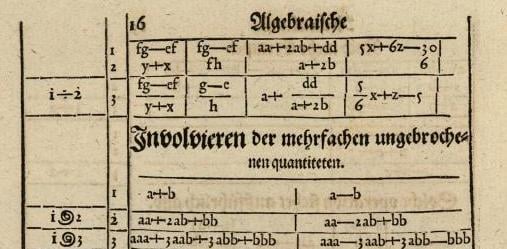 16 Algebraische
1 fg—ef fg—ef aa+2ab+dd 5x+6z—30
2 y+x fh a+2b 6
fg—ef g—e dd 5
i÷2 3 — — a+ — — x+z—5
y+x h a+2b 6
Involvieren der mehrfachen ungebroche=
nen quantiteten.
1 a+b a—b
i@2 2 aa+2ab+bb aa—2ab+bb
i@3 3 aaa+3aab+3abb+bbb aaa—3aab+3abb—bbb